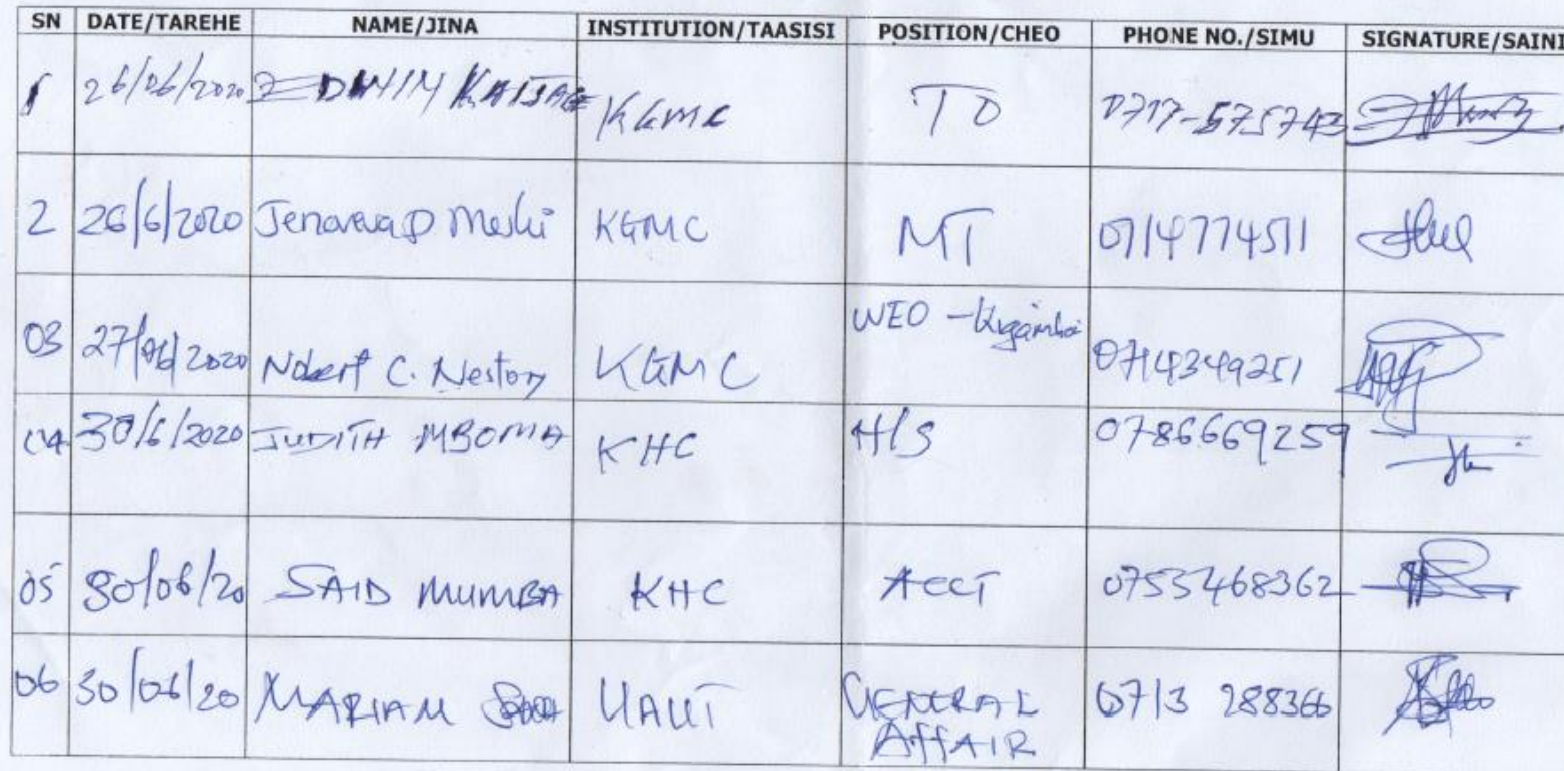 SN DATE/TAREHE NAME/JINA INSTITUTION/TAASISI POSITION/CHEO PHONE NO./SIMU SIGNATURE/SAINI
1 26/06/2020 EDWIN KAIJAGE KGMC TO 0717-575743
2 26/6/2020 D KGMC MT 0714774511
03 27/06/2020 Nobert C. Nestory KGMC WEO - Kigamboni 0714349251
04 30/6/2020 JUDITH MBOMA KHC H/S 0786669259
05 30/06/20 SAID MUMBA KHC ACCT 0753468362
06 30/06/20 MARIAM GENERAL 0713 288366
AFFAIR